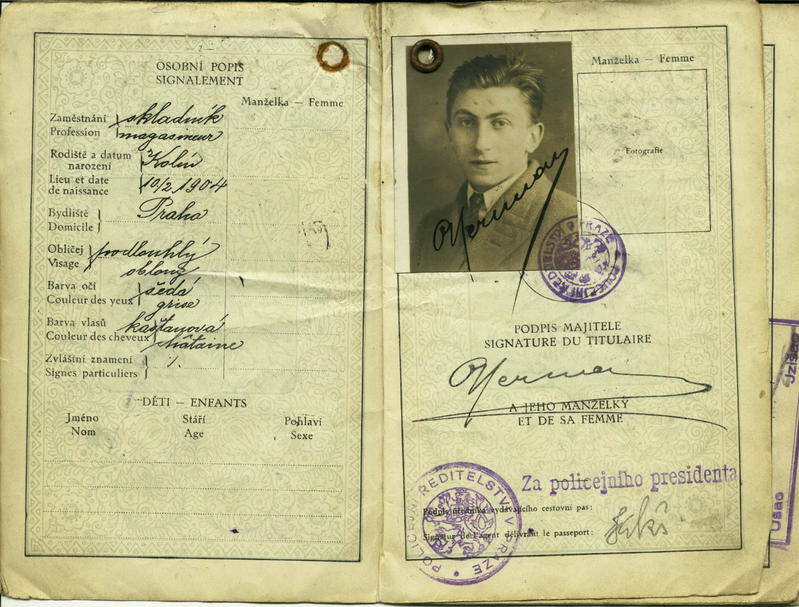 - 2 -
OSOBNÍ POPIS
SIGNALEMENT
Manželka — Femme
Zaměstnání skladník
Profession magasineur
Rodiště a datum narození Kolín
Lieu et date de naissance 10/2 1904
Bydliště Praha
Domicile
Obličej podlouhlý
Visage oblong
Barva očí šedá
Couleur des yeux grise
Barva vlasů kaštanová
Couleur des cheveux châtaine
Zvláštní znamení
Signes particuliers
DĚTI — ENFANTS
Jméno Stáří Pohlaví
Nom Age Sexe
Manželka — Femme
Fotografie
POLICEJNÍ ŘEDITELSTVÍ V PRAZE
PODPIS MAJITELE
SIGNATURE DU TITULAIRE
A JEHO MANŽELKY
ET DE SA FEMME
Za policejního presidenta
Podpis úředníka vydávajícího cestovní pas:
Signatur de l'agent délivrant le passeport:
POLICEJNÍ ŘEDITELSTVÍ V PRAZE